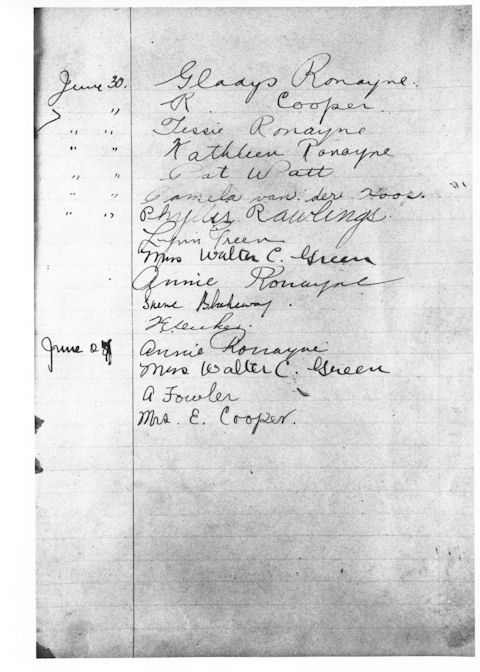 June 30. Gladys Ronayne.
" R. Cooper.
" " Tessie Ronayne
" " Kathleen Ronayne
" " Pat Watt
" " Pamela van der
" " Phyllis Rawlings.
Lynn Green
Mrs Walter C. Green
Annie Ronayne
Irene Blakeway.

June Annie Ronayne
Mrs Walter C. Green
A Fowler
Mrs. E. Cooper.